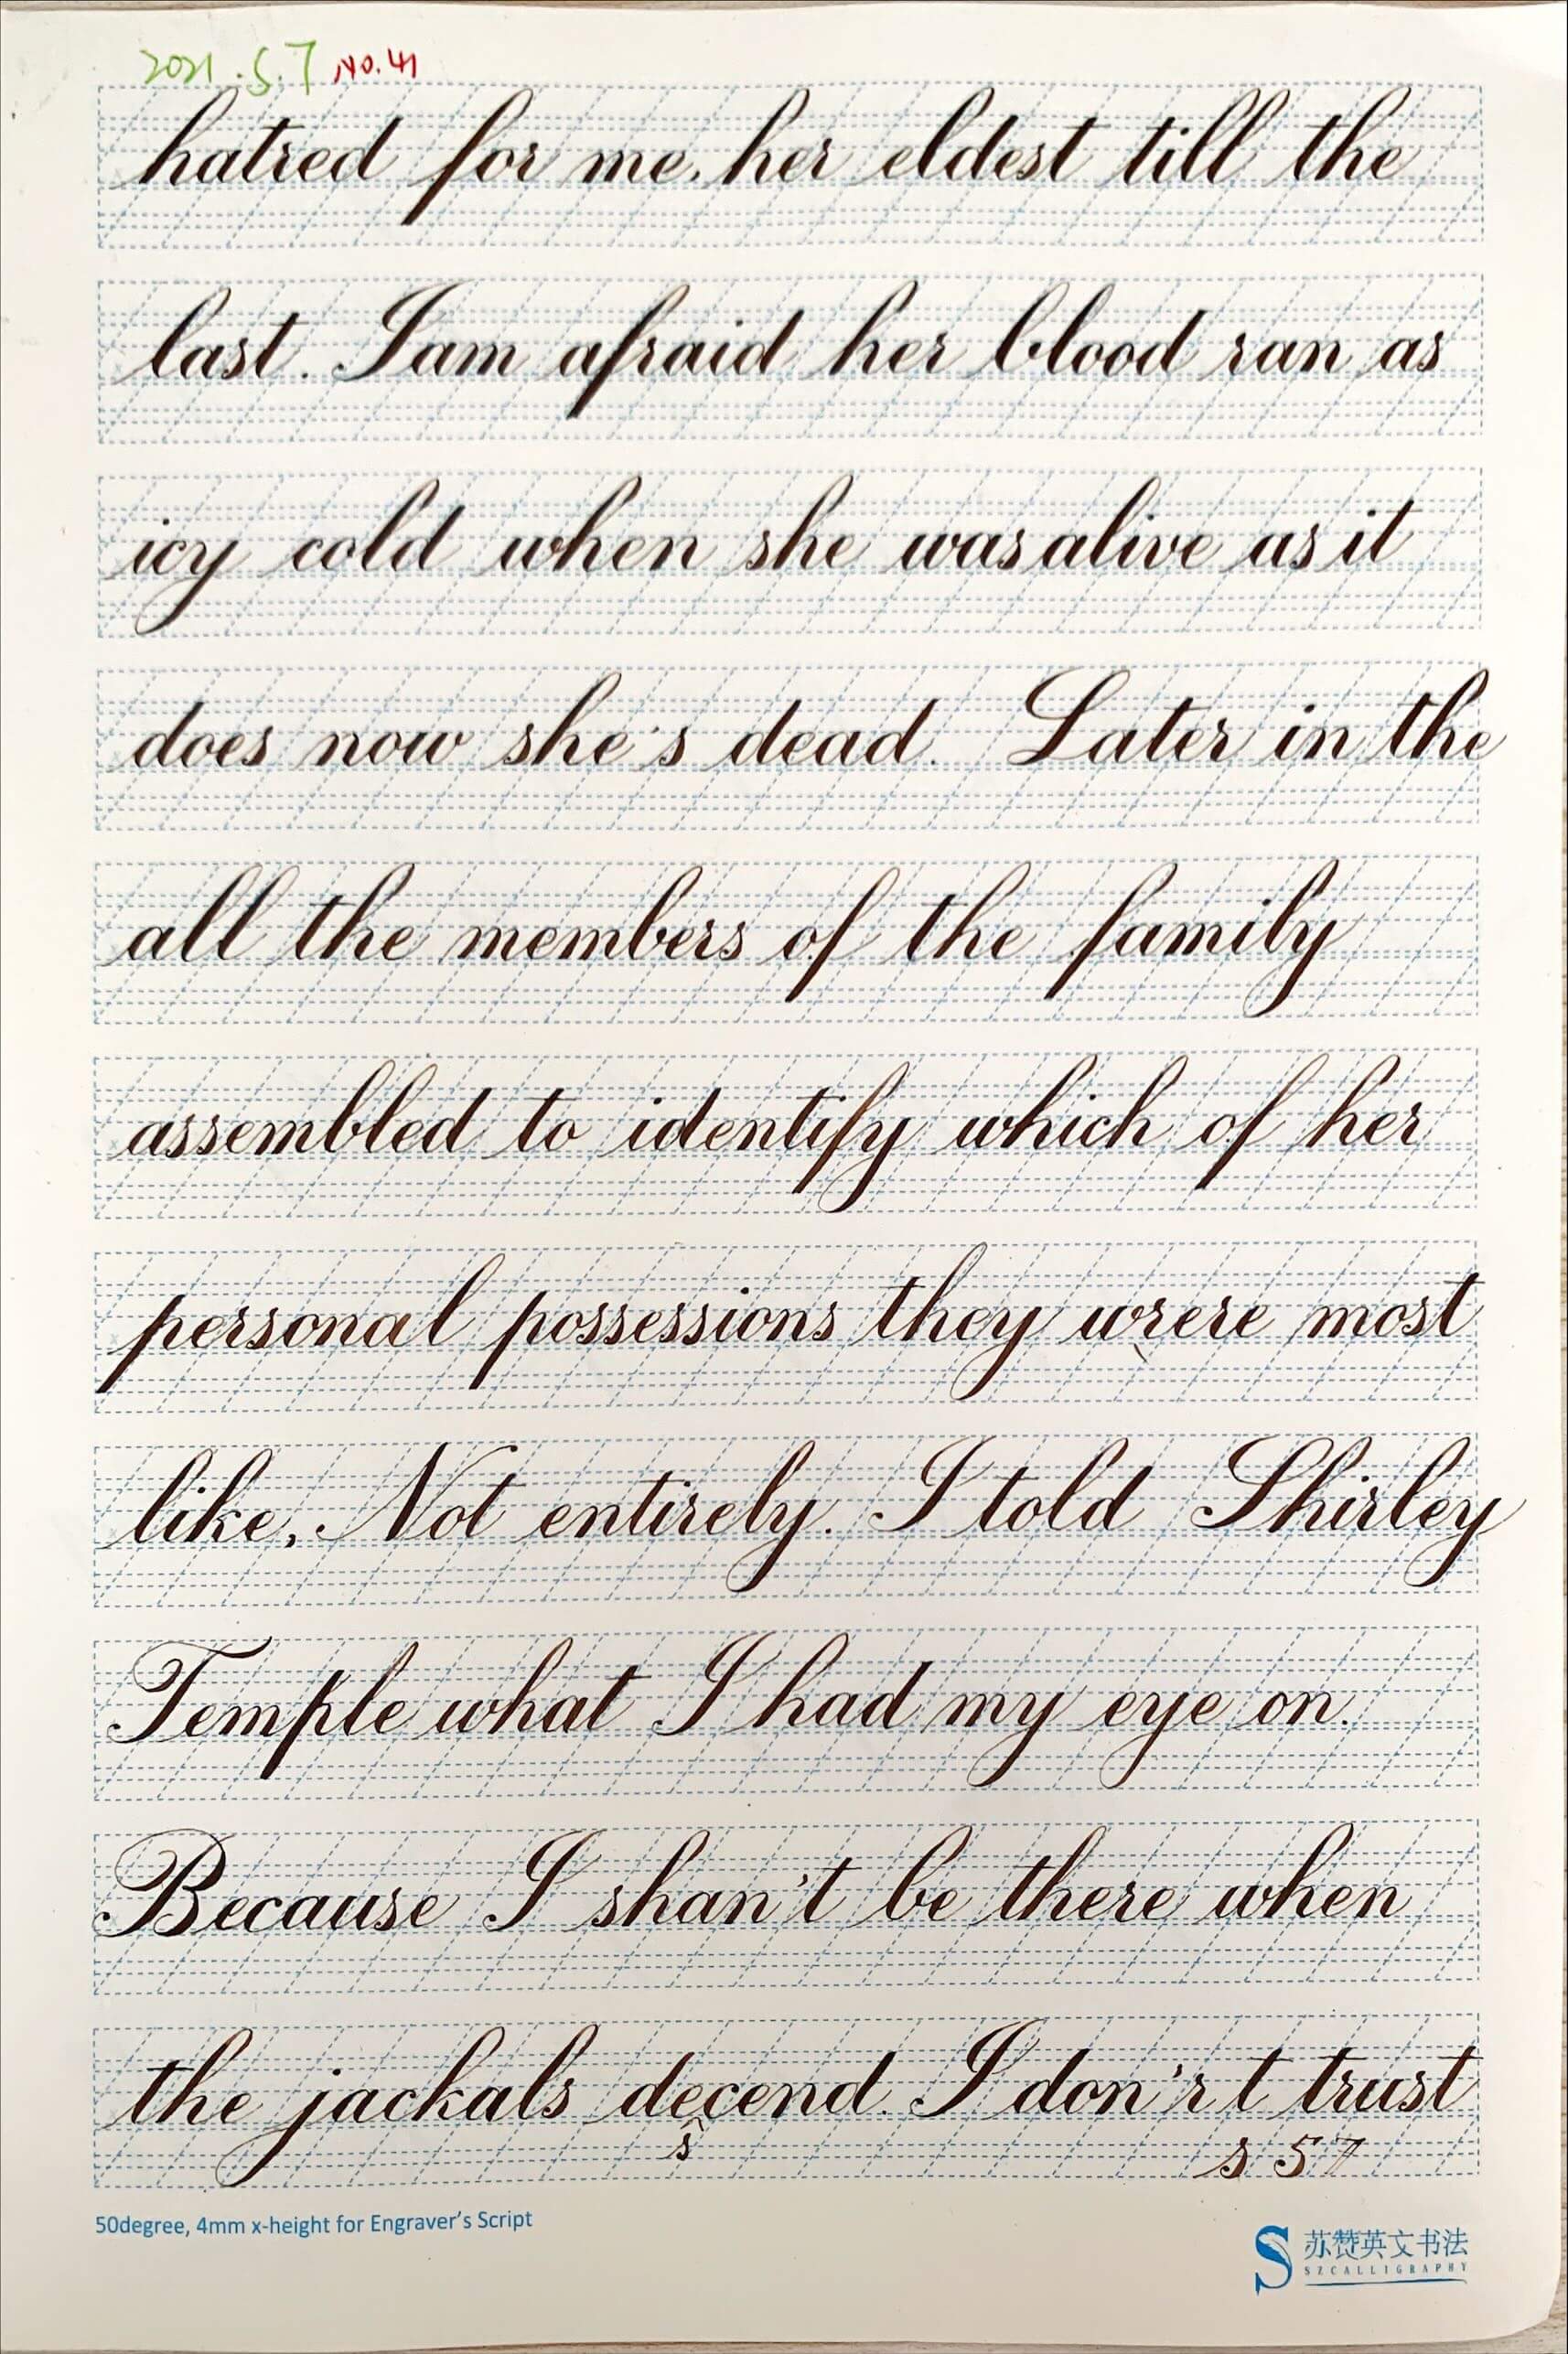 2021.5.7 No.41
hatred for me. her eldest till the
last. I am afraid her blood ran as
icy cold when she was alive as it
does now she's dead. Later in the
all the members of the family
assembled to identify which of her
personal possessions they wrere most
like, Not entirely. I told Shirley
Temple what I had my eye on.
Because I shan't be there when
the jackals decend. I don'r t trust
s
s 57
50degree, 4mm x-height for Engraver's Script
苏赞英文书法
SZCALLIGRAPHY